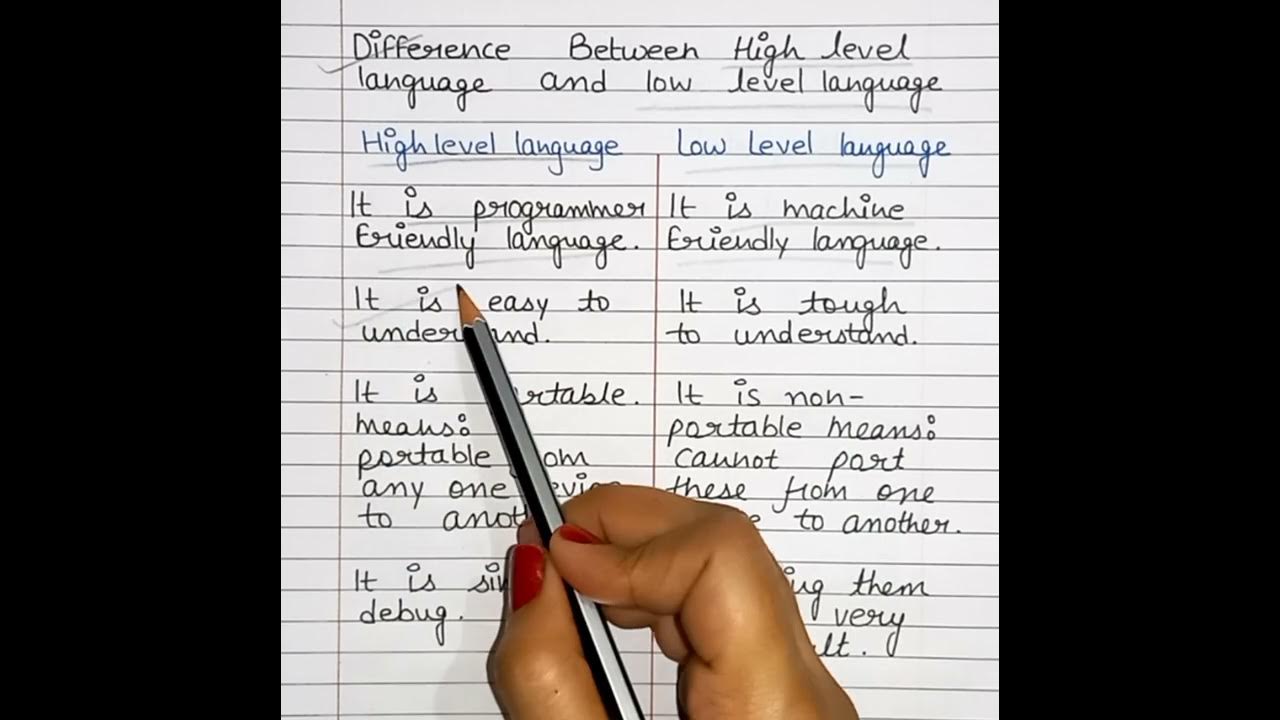 Difference Between High level
language and low level language
High level language
Low Level language
It is programmer
friendly language.
It is machine
friendly language.
It is easy to
understand.
It is tough
to understand.
It is portable.
means:
portable from
any one device
to another
It is non-
portable means:
cannot port
these from one
to another.
It is
debug.
them
very